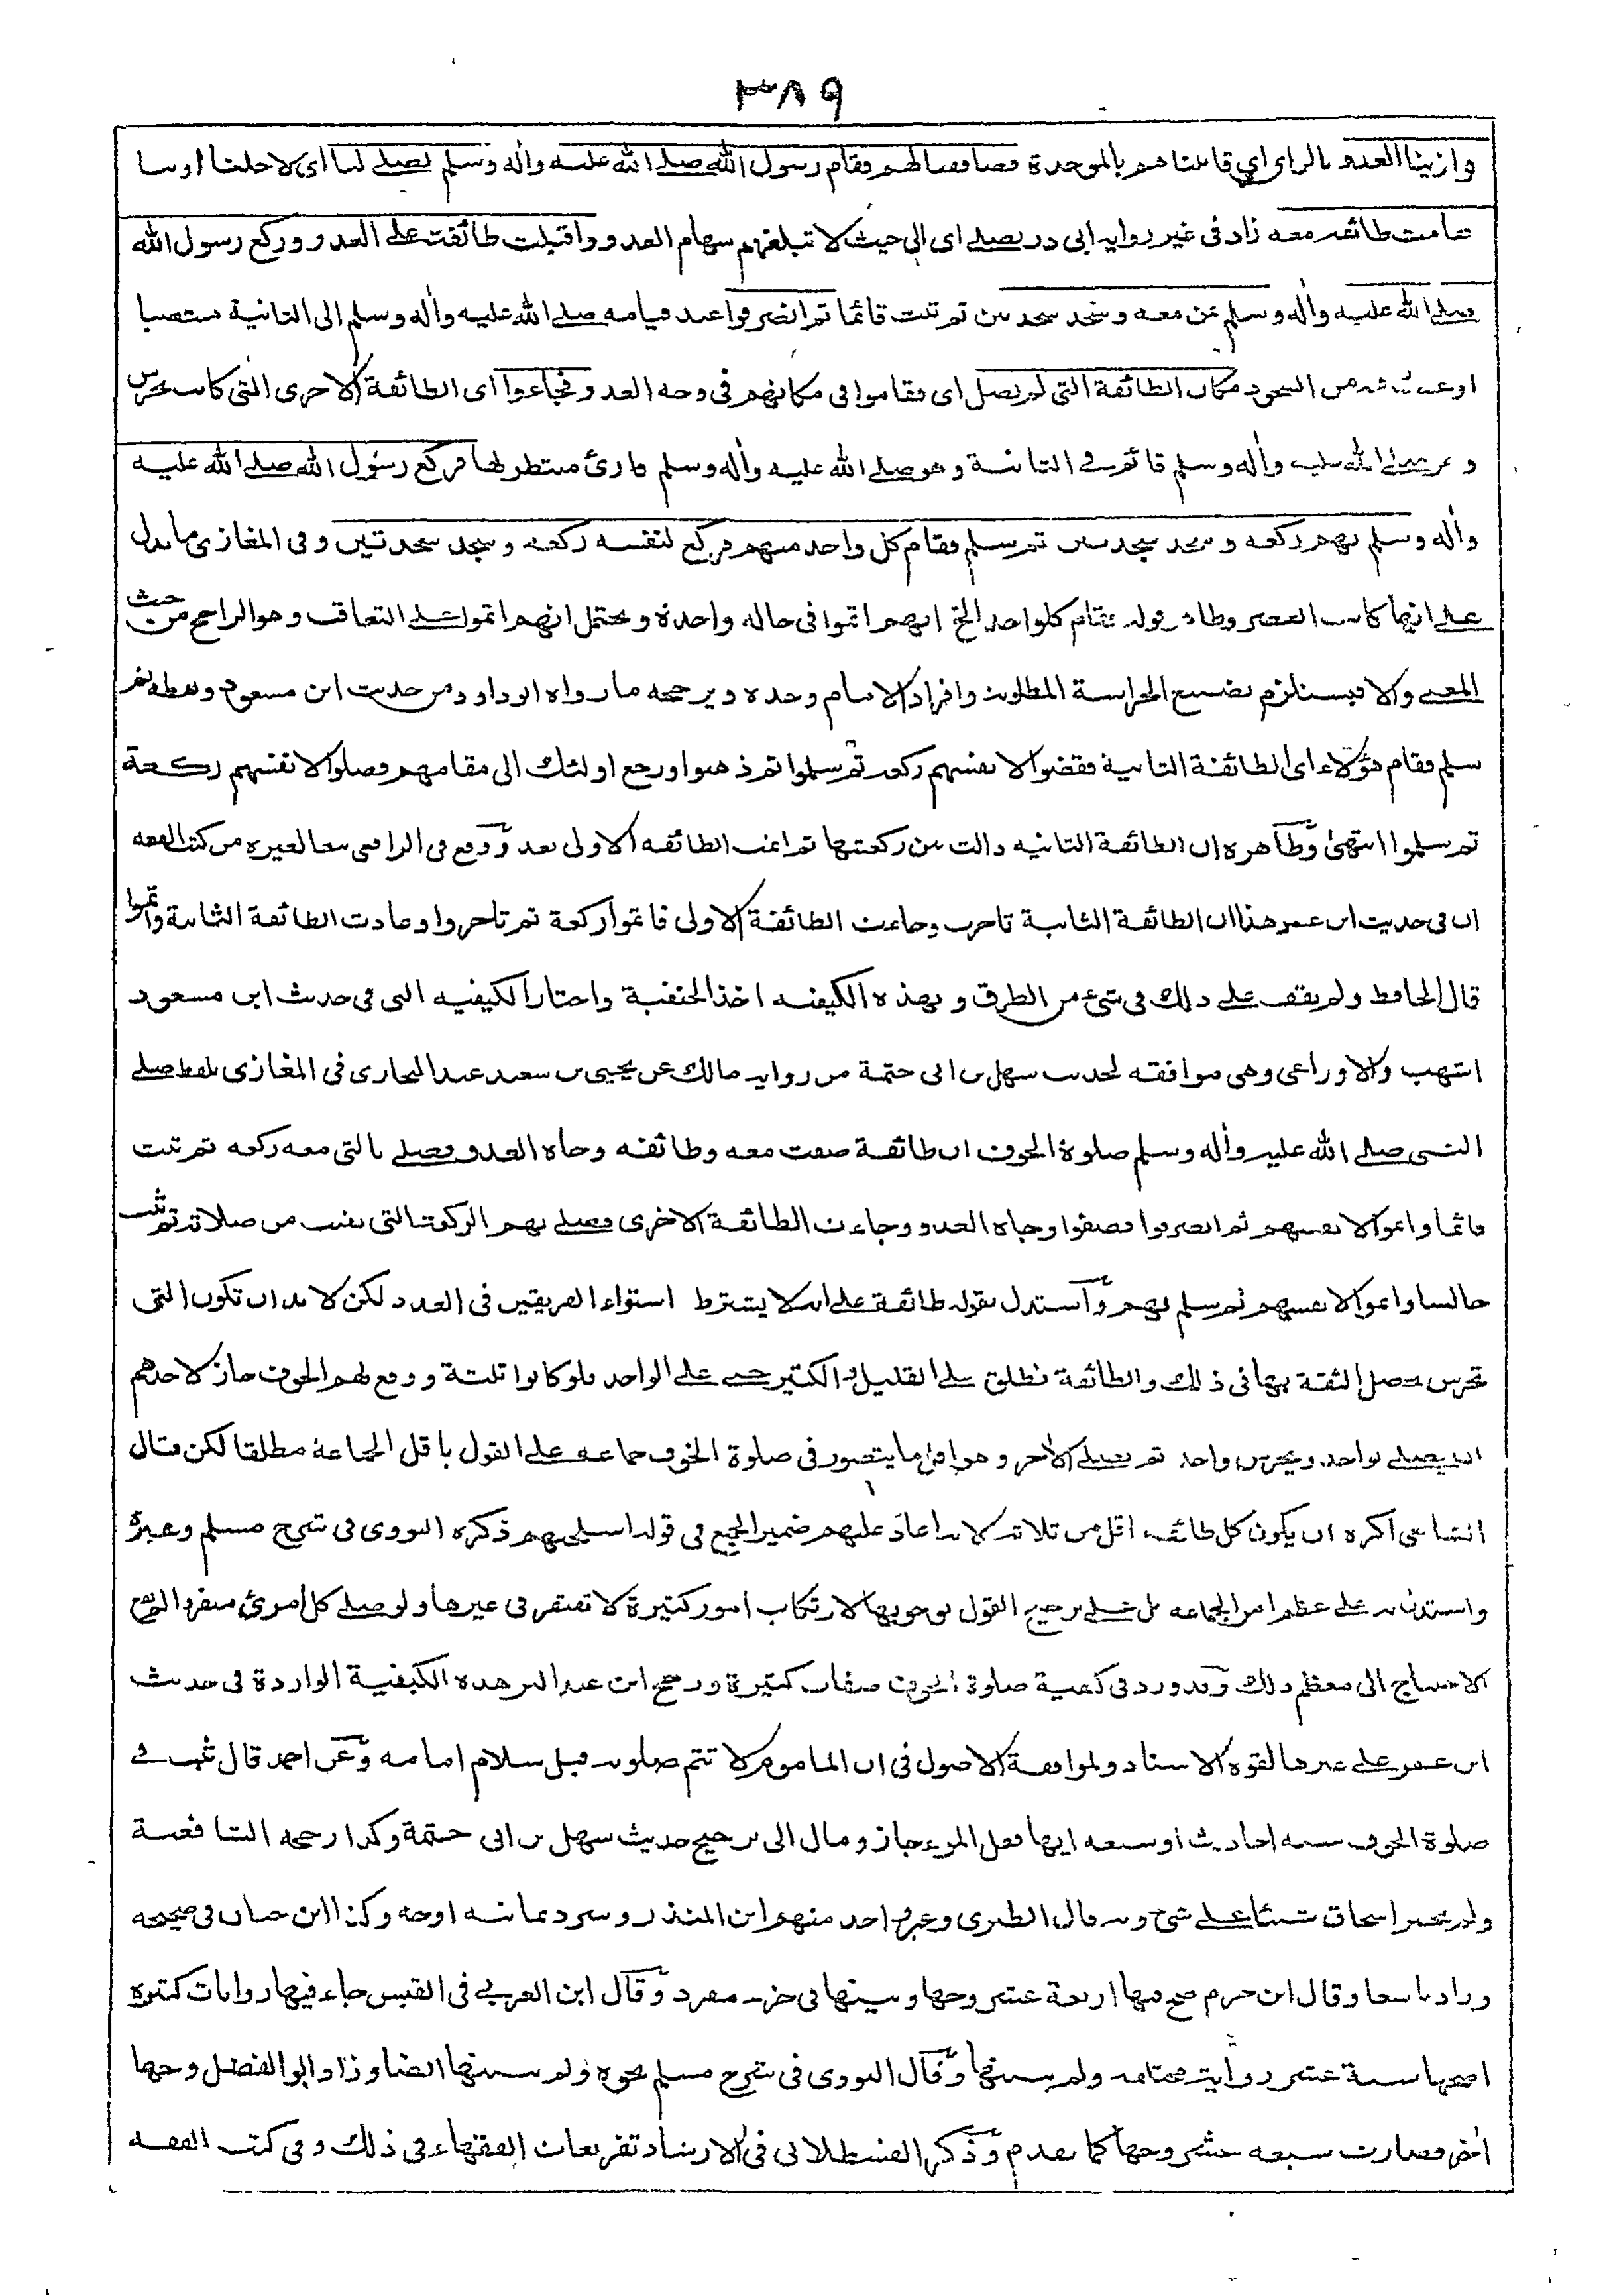 ٣٨٩
وازينا العدو بالراي اي قابلناهم بالموحدة فصاففنا لهم فقام رسول الله صلے الله عليه وأله وسلم يصلے لنا اى لاجلنا او بنا
فقامت طائفة معه زاد فى غير رواية ابى در يصلے اى الى حيث لا تبلغهم سهام العدو واقبلت طائفة علے العدو وركع رسول الله
صلے الله عليه وأله وسلم بمن معه وسجد سجدتين ثم ثبت قائما ثم انصرفوا عند قيامه صلے الله عليه وأله وسلم الى الثانية منتصبا
او عقب رفعه من السجود مكان الطائفة التى لم يصل اى فقاموا فى مكانهم فى وجه العدو فجاءوا اى الطائفة الاخرى التى كانت تحرس
وهو صلے الله عليه وأله وسلم قائم فے الثانية وهو صلے الله عليه وأله وسلم قارئ منتظر لها فركع رسول الله صلے الله عليه
وأله وسلم بهم ركعة وسجد سجدتين ثم سلم فقام كل واحد منهم فركع لنفسه ركعة وسجد سجدتين وفى المغازى ما يدل
علے انها كانت العصر وظاهر قوله فقام كل واحد الخ انهم اتموا فى حالة واحدة ويحتمل انهم اتموا علے التعاقب وهو الراجح من حيث
المعنے والا فيستلزم تضييع الحراسة المطلوبة وافراد الامام وحده ويرجحه ما رواه ابو داود من حديث ابن مسعود ولفظه ثم
سلم فقام هؤلاء اى الطائفة الثانية فقضوا لانفسهم ركعة ثم سلموا ثم ذهبوا ورجع اولئك الى مقامهم فصلوا لانفسهم ركعة
ثم سلموا انتهىٰ وظاهره ان الطائفة الثانية والت بين ركعتيها ثم اتمت الطائفة الاولى بعد ووقع فى الرافعى تبعا لغيره من كتب الفقه
ان فى حديث ابن عمر هذا ان الطائفة الثانية تاخرت وجاءت الطائفة الاولى فاتموا ركعة ثم تاخروا وعادت الطائفة الثانية واتموا
قال الحافظ ولم نقف علے ذلك فى شئ من الطرق وبهذه الكيفية اخذ الحنفية واختار الكيفيه التى فى حديث ابن مسعود
اشهب والاوزاعى وهى موافقه لحديث سهل بن ابى حثمة من رواية مالك عن يحيى بن سعيد عند البخارى فى المغازى بلفظ صلے
النبى صلے الله عليه وأله وسلم صلوة الخوف ان طائفة صفت معه وطائفة وجاه العدو فصلے بالتى معه ركعه ثم ثبت
قائما واتموا لانفسهم ثم انصرفوا فصفوا وجاه العدو وجاءت الطائفة الاخرى فصلے بهم الركعة التى بقيت من صلاته ثم ثبت
جالسا واتموا لانفسهم ثم سلم بهم واستدل بقوله طائفة علے انه لا يشترط استواء الفريقين فى العدد لكن لا بد ان تكون التى
تحرس تحصل الثقة بها فى ذلك والطائفة تطلق علے القليل والكثير حتے علے الواحد فلو كانوا ثلثة ووقع لهم الخوف جاز لاحدهم
ان يصلے بواحد ويحرس واحد ثم يصلے الاخر وهو اقل ما يتصور فى صلوة الخوف جماعة علے القول باقل الجماعة مطلقا لكن قال
الشافعى اكره ان يكون كل طائفة اقل من ثلاثة لانه اعاد عليهم ضمير الجمع فى قوله اسلحتهم ذكره النووى فى شرح مسلم وغيره
واستدل به علے عظم امر الجماعة بل علے ترجيح القول بوجوبها لارتكاب امور كثيرة لا تغتفر فى غيرها ولو صلے كل امرئ منفردا لم يقع
الاحتياج الى معظم ذلك وقد ورد فى كيفية صلوة الخوف صفات كثيرة ورجح ابن عبد البر هذه الكيفية الواردة فى حديث
ابن عمر علے غيرها لقوة الاسناد ولموافقة الاصول فى ان الماموم لا تتم صلوته قبل سلام امامه وعن احمد قال ثبت فے
صلوة الخوف ستة احاديث او سبعه ايها فعل المرء جاز ومال الى ترجيح حديث سهل بن ابى حثمة وكذا رجحه الشافعية
ولم يختر اسحاق شيئا علے شئ وبه قال الطبرى وغير واحد منهم ابن المنذر وسرد ثمانية اوجه وكذا ابن حبان فى صحيحه
وزاد تاسعا وقال ابن حزم صح فيها اربعة عشر وجها وبينها فى جزء مفرد وقال ابن العربى فى القبس جاء فيها روايات كثيره
اصحها ستة عشر رواية مختلفة ولم يبينها وقال النووى فى شرح مسلم نحوه ولم يبينها ايضا وزاد ابو الفضل وجها
أخر فصارت سبعه عشر وجها كما تقدم وذكر القسطلانى فى الارشاد تفريعات الفقهاء فى ذلك وفى كتب الفقه